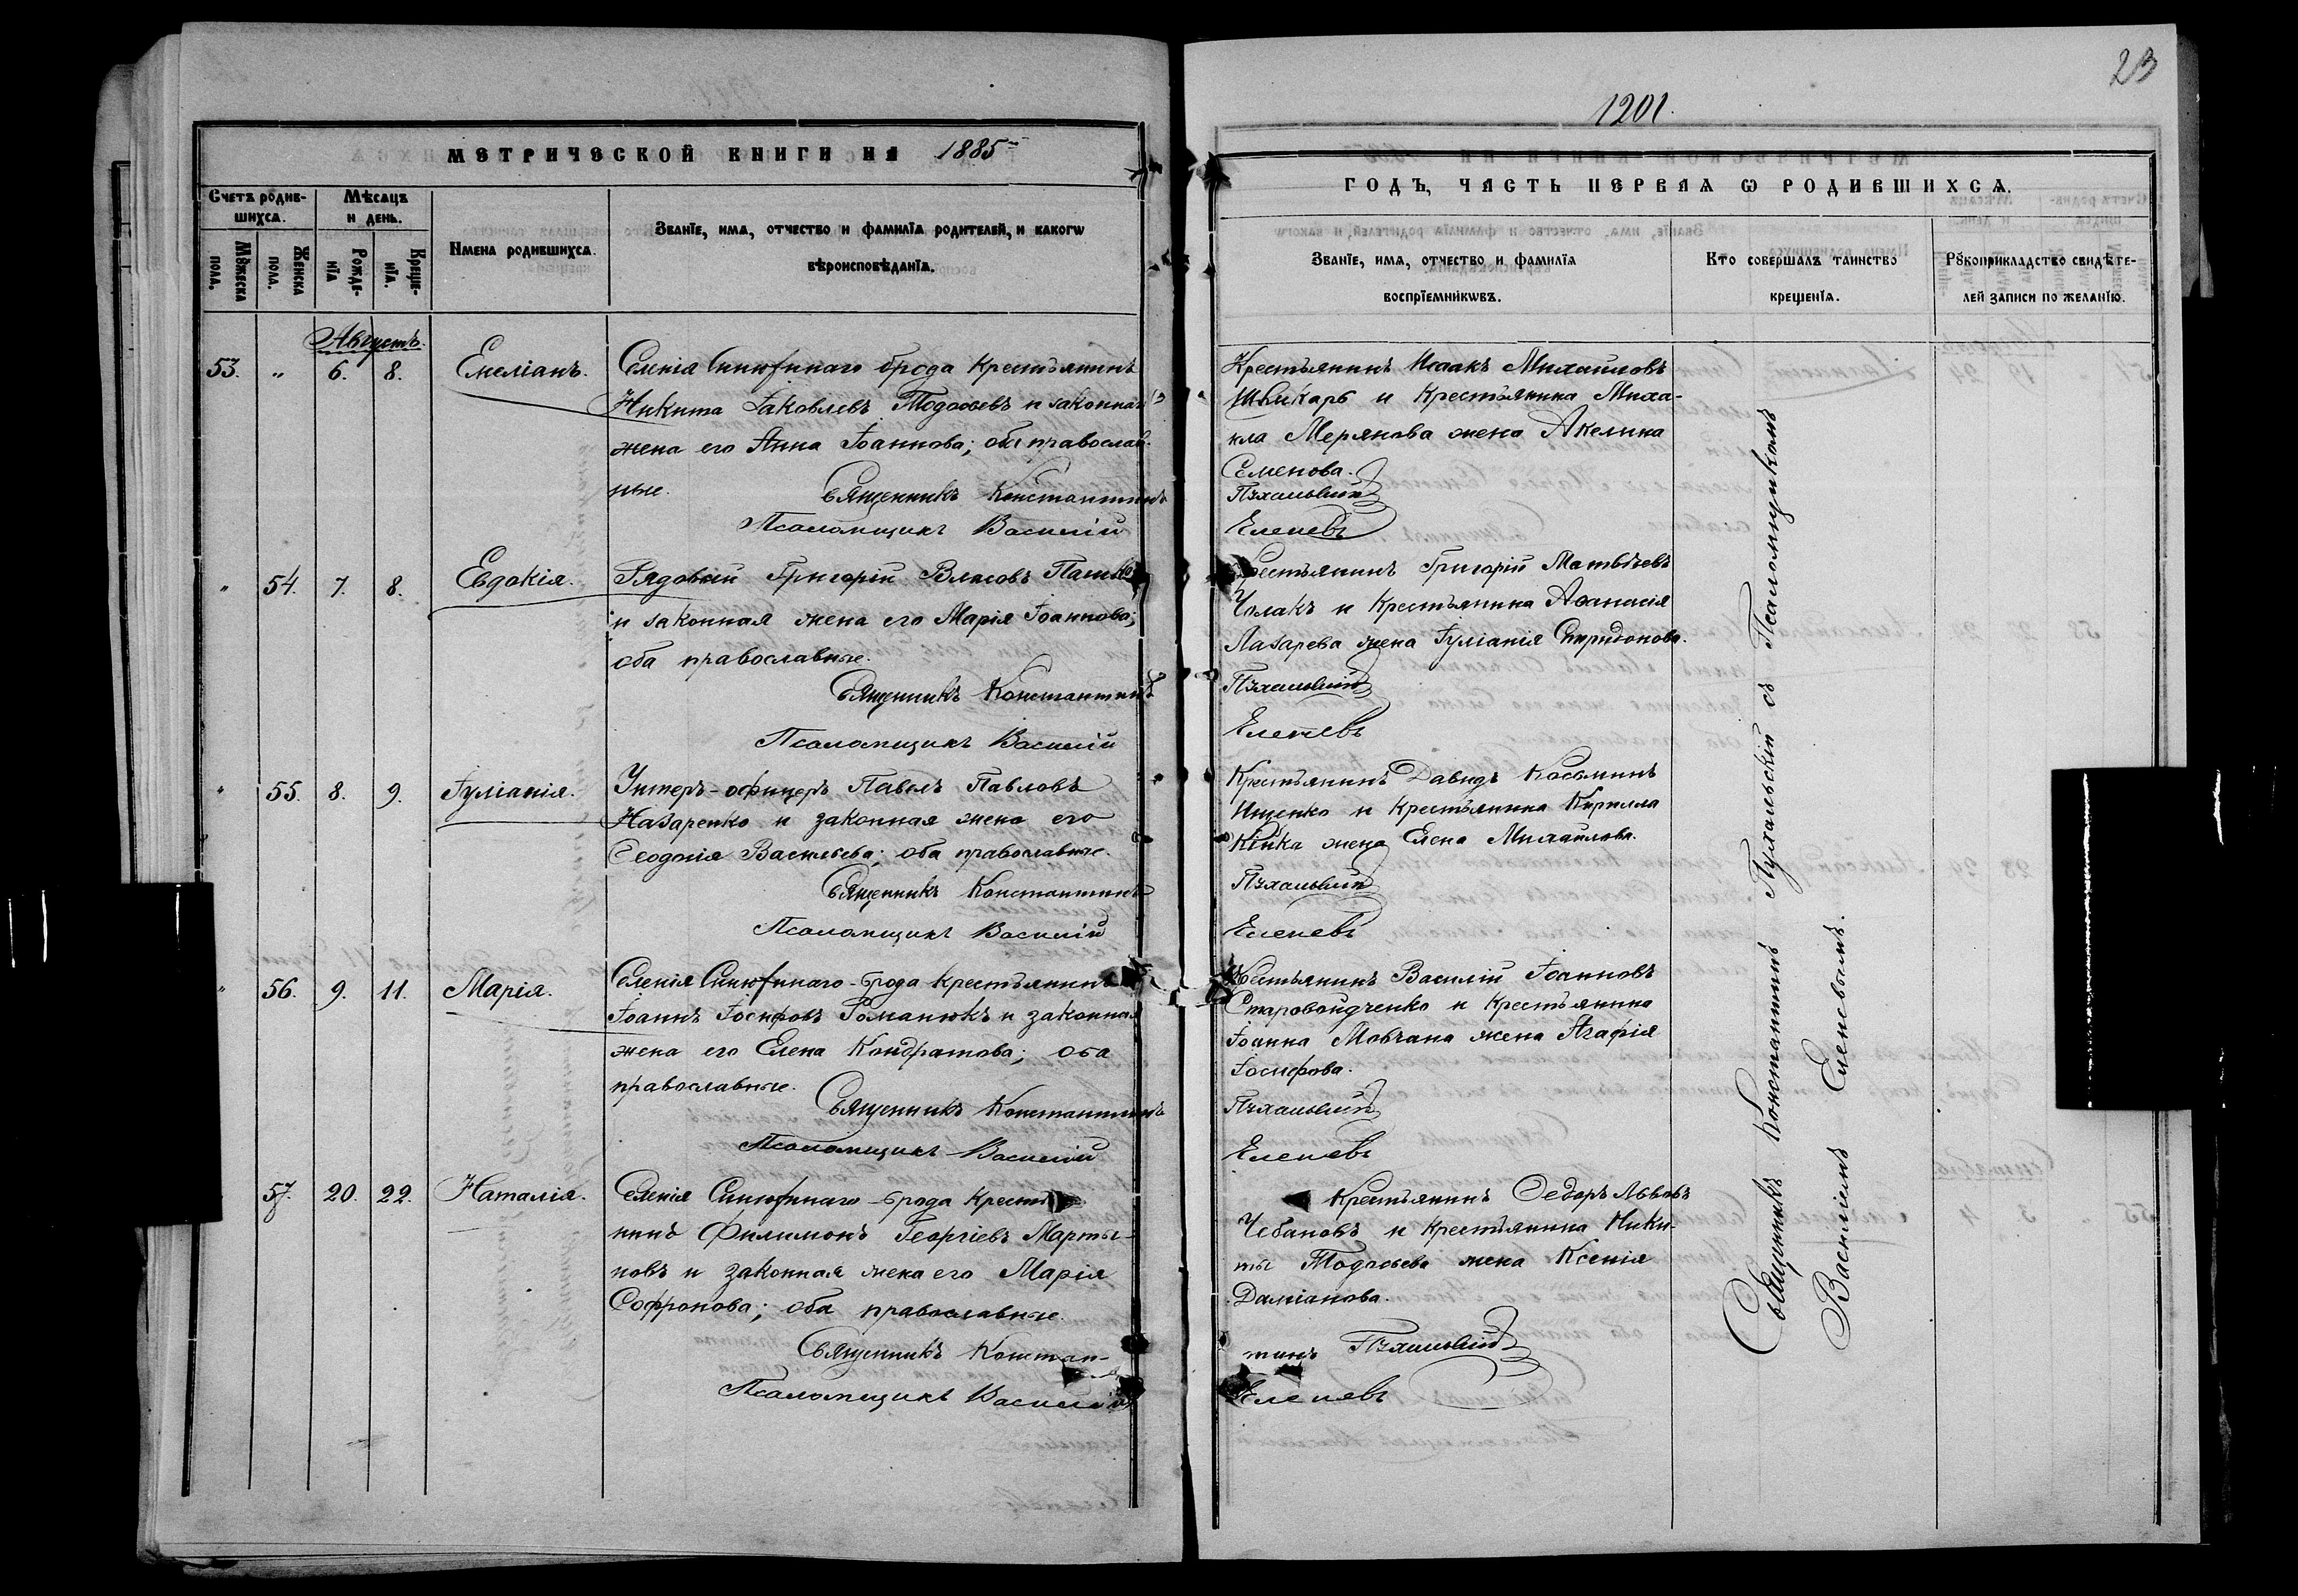 23
1201.
МЕТРИЧЕСКОЙ КНИГИ НА 1885
ГОДЪ, ЧАСТЬ ПЕРВАЯ Ѡ РОДИВШИХСѦ.
Счетъ родив-
шихсѧ.
Мѣсѧцъ
и день.
Мꙋжеска
пола.
Женска
пола.
Рожде-
нїѧ
Креще-
нїѧ.
Имена родившихсѧ.
Званїе, имѧ, отчество и фамилїѧ родителей, и какогѡ
вѣроисповѣданїѧ.
Званїе, имѧ, отчество и фамилїѧ
воспрїемникѡвъ.
Кто совершалъ таинство
крещенїѧ.
Рꙋкоприкладство свидѣте-
лей записи по желанїю.
Августъ.
53. " 6. 8. Емеліанъ.
Селенія Синюхинаго брода Крестьянинъ
Никита Іаковлевъ Тодосьевъ и законная
жена его Анна Іоаннова; оба православ-
ные.
Священникъ Константинъ
Псаломщикъ Василій
Крестьянинъ Исаакъ Михаиловъ
и Крестьянина Миха-
ила Мерянова жена Акелина
Семенова.
Пухальскій
Еленевъ
" 54. 7. 8. Евдокія.
Рядовой Григорій Власовъ
и законная жена его Марія Іоаннова;
оба православные.
Священникъ Константинъ
Псаломщикъ Василій
Крестьянинъ Григорій Матвѣевъ
Чолакъ и Крестьянина Аѳанасія
Лазарева жена Іуліанія Спиридонова.
Пухальскій
Еленевъ
" 55. 8. 9. Іуліанія.
Унтеръ-офицеръ Павелъ Павловъ
Назаренко и законная жена его
Ѳеодосія Васильева; оба православные.
Священникъ Константинъ
Псаломщикъ Василій
Крестьянинъ Давидъ Косьминъ
Ищенко и Крестьянина Кирилла
жена Елена Михаилова.
Пухальскій
Еленевъ
" 56. 9. 11. Марія.
Селенія Синюхинаго-брода Крестьянинъ
Іоаннъ Іосифовъ Романюкъ и законная
жена его Елена Кондратова; оба
православные.
Священникъ Константинъ
Псаломщикъ Василій
Крестьянинъ Василій Іоанновъ
Старовойдченко и Крестьянина
Іоанна Мовчана жена Агафія
Іосифова.
Пухальскій
Еленевъ
57. 20. 22. Наталія.
Селенія Синюхинаго-брода Крестья
нинъ Филимонъ Георгіевъ Марты-
новъ и законная жена его Марія
Софронова; оба православные.
Священникъ Констан-
Псаломщикъ Василій
Крестьянинъ Ѳедоръ Львовъ
Чебановъ и Крестьянина Ники-
ты Тодосьева жена Ксенія
Даміанова.
тинъ Пухальскій
Еленевъ
Священникъ Константинъ Пухальскій съ Псаломщикомъ
Василіемъ Еленевымъ.